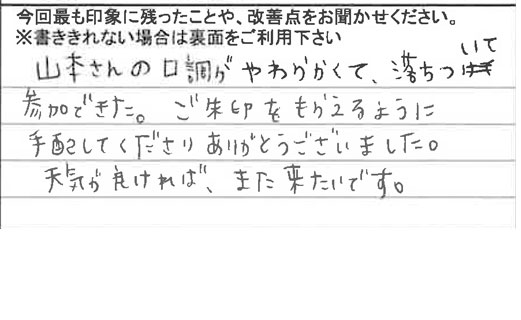 今回最も印象に残ったことや、改善点をお聞かせください。
※書ききれない場合は裏面をご利用下さい
山本さんの口調がやわらかくて、落ちついて
参加できた。ご朱印をもらえるように
手配してくださりありがとうございました。
天気が良ければ、また来たいです。